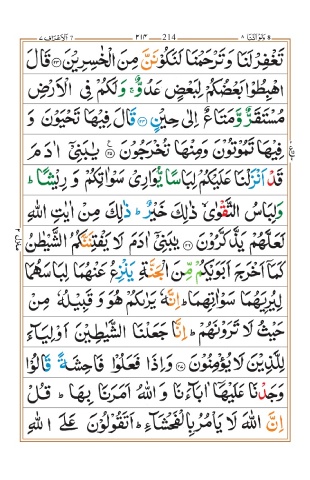 الاعراف ٧ ٢١٣ 214 ولواننا ٨
تَغْفِرْ لَنَا وَتَرْحَمْنَا لَنَكُوْنَنَّ مِنَ الْخٰسِرِيْنَ ۝۲۳ قَالَ
اهْبِطُوْا بَعْضُكُمْ لِبَعْضٍ عَدُوٌّ ۚ وَلَكُمْ فِى الْاَرْضِ
مُسْتَقَرٌّ وَّمَتَاعٌ اِلٰى حِيْنٍ ۝۲۴ قَالَ فِيْهَا تَحْيَوْنَ وَ
فِيْهَا تَمُوْتُوْنَ وَمِنْهَا تُخْرَجُوْنَ ۝۲۵ يٰبَنِىْٓ اٰدَمَ
قَدْ اَنْزَلْنَا عَلَيْكُمْ لِبَاسًا يُّوَارِىْ سَوْاٰتِكُمْ وَرِيْشًا ؕ
وَلِبَاسُ التَّقْوٰى ۙ ذٰلِكَ خَيْرٌ ؕ ذٰلِكَ مِنْ اٰيٰتِ اللّٰهِ
لَعَلَّهُمْ يَذَّكَّرُوْنَ ۝۲۶ يٰبَنِىْٓ اٰدَمَ لَا يَفْتِنَنَّكُمُ الشَّيْطٰنُ
كَمَاۤ اَخْرَجَ اَبَوَيْكُمْ مِّنَ الْجَنَّةِ يَنْزِعُ عَنْهُمَا لِبَاسَهُمَا
لِيُرِيَهُمَا سَوْاٰتِهِمَا ؕ اِنَّهٗ يَرٰىكُمْ هُوَ وَقَبِيْلُهٗ مِنْ
حَيْثُ لَا تَرَوْنَهُمْ ؕ اِنَّا جَعَلْنَا الشَّيٰطِيْنَ اَوْلِيَآءَ
لِلَّذِيْنَ لَا يُؤْمِنُوْنَ ۝۲۷ وَاِذَا فَعَلُوْا فَاحِشَةً قَالُوْا
وَجَدْنَا عَلَيْهَاۤ اٰبَآءَنَا وَاللّٰهُ اَمَرَنَا بِهَا ؕ قُلْ
اِنَّ اللّٰهَ لَا يَاْمُرُ بِالْفَحْشَآءِ ؕ اَتَقُوْلُوْنَ عَلَى اللّٰهِ